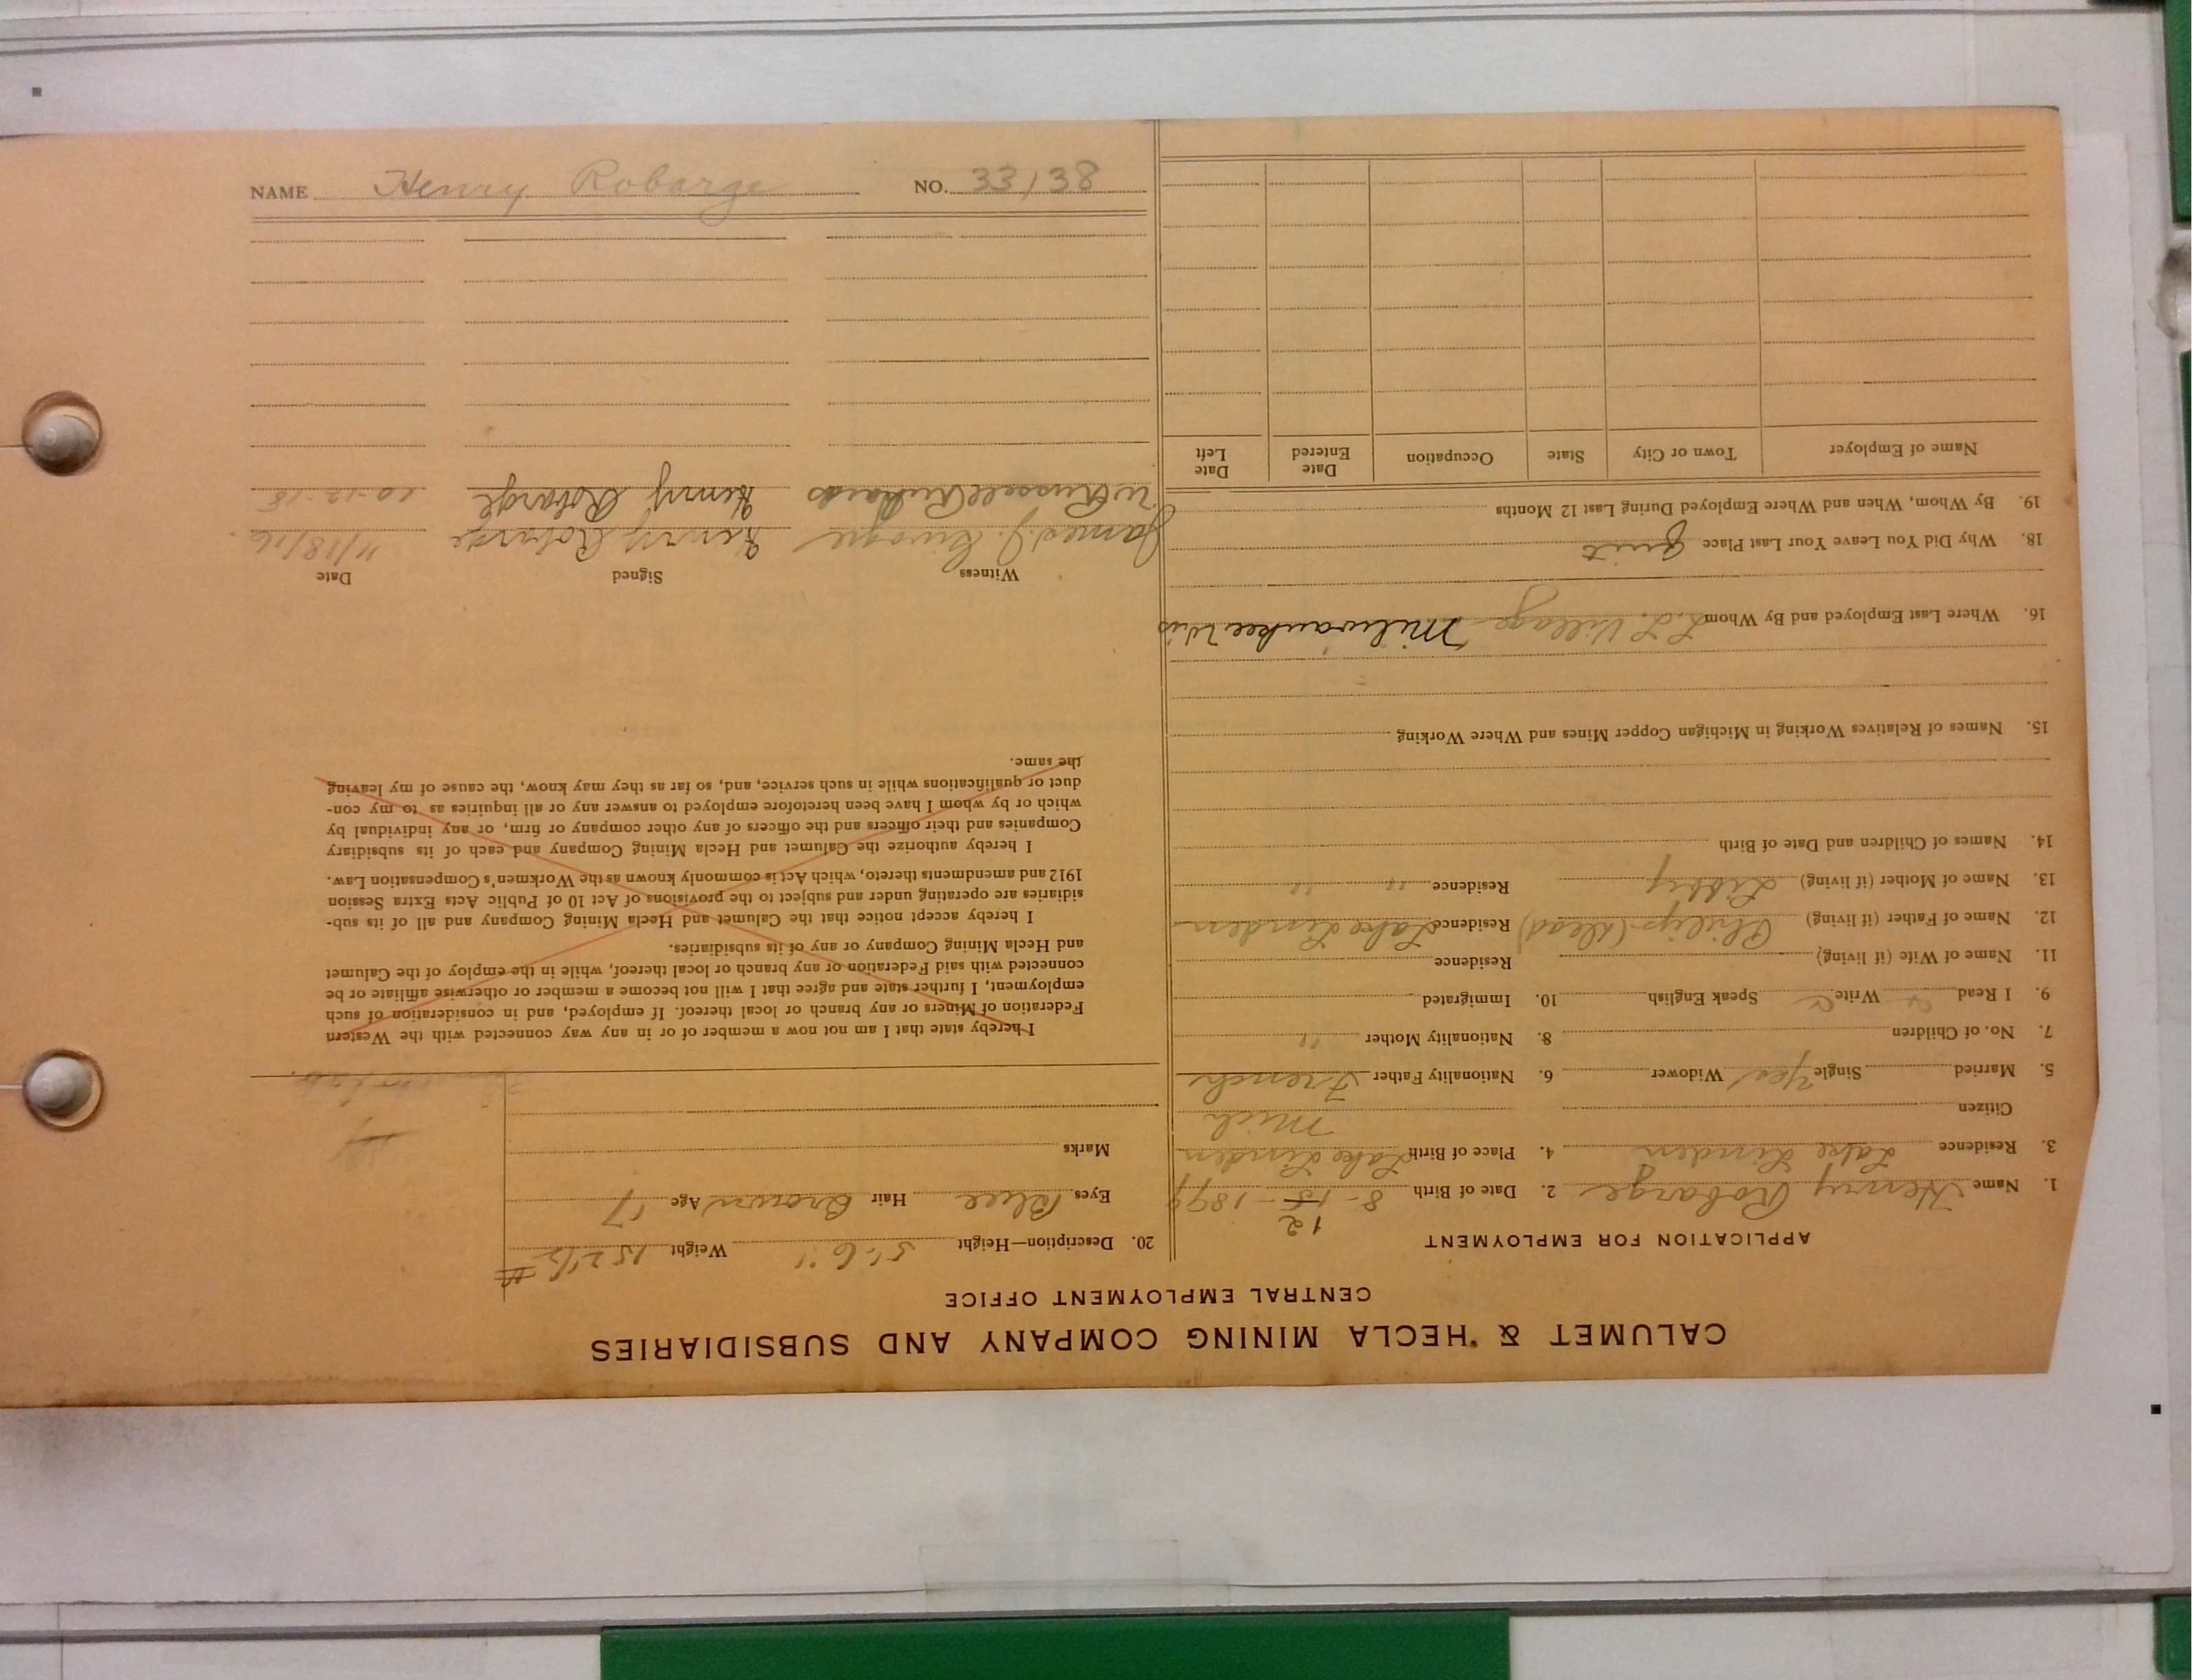 CALUMET & HECLA MINING COMPANY AND SUBSIDIARIES
CENTRAL EMPLOYMENT OFFICE
APPLICATION FOR EMPLOYMENT
1. Name Henry Robarge 2. Date of Birth 8-15-1899
12
3. Residence Lake Linden 4. Place of Birth Lake Linden
Citizen Mich
5. Married Single Yes Widower 6. Nationality Father French
7. No. of Children 8. Nationality Mother "
9. I Read Write Speak English 10. Immigrated
11. Name of Wife (if living) Residence
12. Name of Father (if living) Philip (dead) Residence Lake Linden
13. Name of Mother (if living) Libby Residence " "
14. Names of Children and Date of Birth
15. Names of Relatives Working in Michigan Copper Mines and Where Working
16. Where Last Employed and By Whom L. L. Village Milwaukee Wis
18. Why Did You Leave Your Last Place Quit
19. By Whom, When and Where Employed During Last 12 Months
Name of Employer Town or City State Occupation Date Entered Date Left
20. Description—Height 5'-6" Weight 152 1/2 #
Eyes Blue Hair Brown Age 17
Marks
I hereby state that I am not now a member of or in any way connected with the Western
Federation of Miners or any branch or local thereof. If employed, and in consideration of such
employment, I further state and agree that I will not become a member or otherwise affiliate or be
connected with said Federation or any branch or local thereof, while in the employ of the Calumet
and Hecla Mining Company or any of its subsidiaries.
I hereby accept notice that the Calumet and Hecla Mining Company and all of its sub-
sidiaries are operating under and subject to the provisions of Act 10 of Public Acts Extra Session
1912 and amendments thereto, which Act is commonly known as the Workmen's Compensation Law.
I hereby authorize the Calumet and Hecla Mining Company and each of its subsidiary
Companies and their officers and the officers of any other company or firm, or any individual by
which or by whom I have been heretofore employed to answer any or all inquiries as to my con-
duct or qualifications while in such service, and, so far as they may know, the cause of my leaving
the same.
Witness Signed Date
James J. Henry Robarge 11/18/16.
W Russell Richards Henry Robarge 10-12-18
NAME Henry Robarge NO. 33138